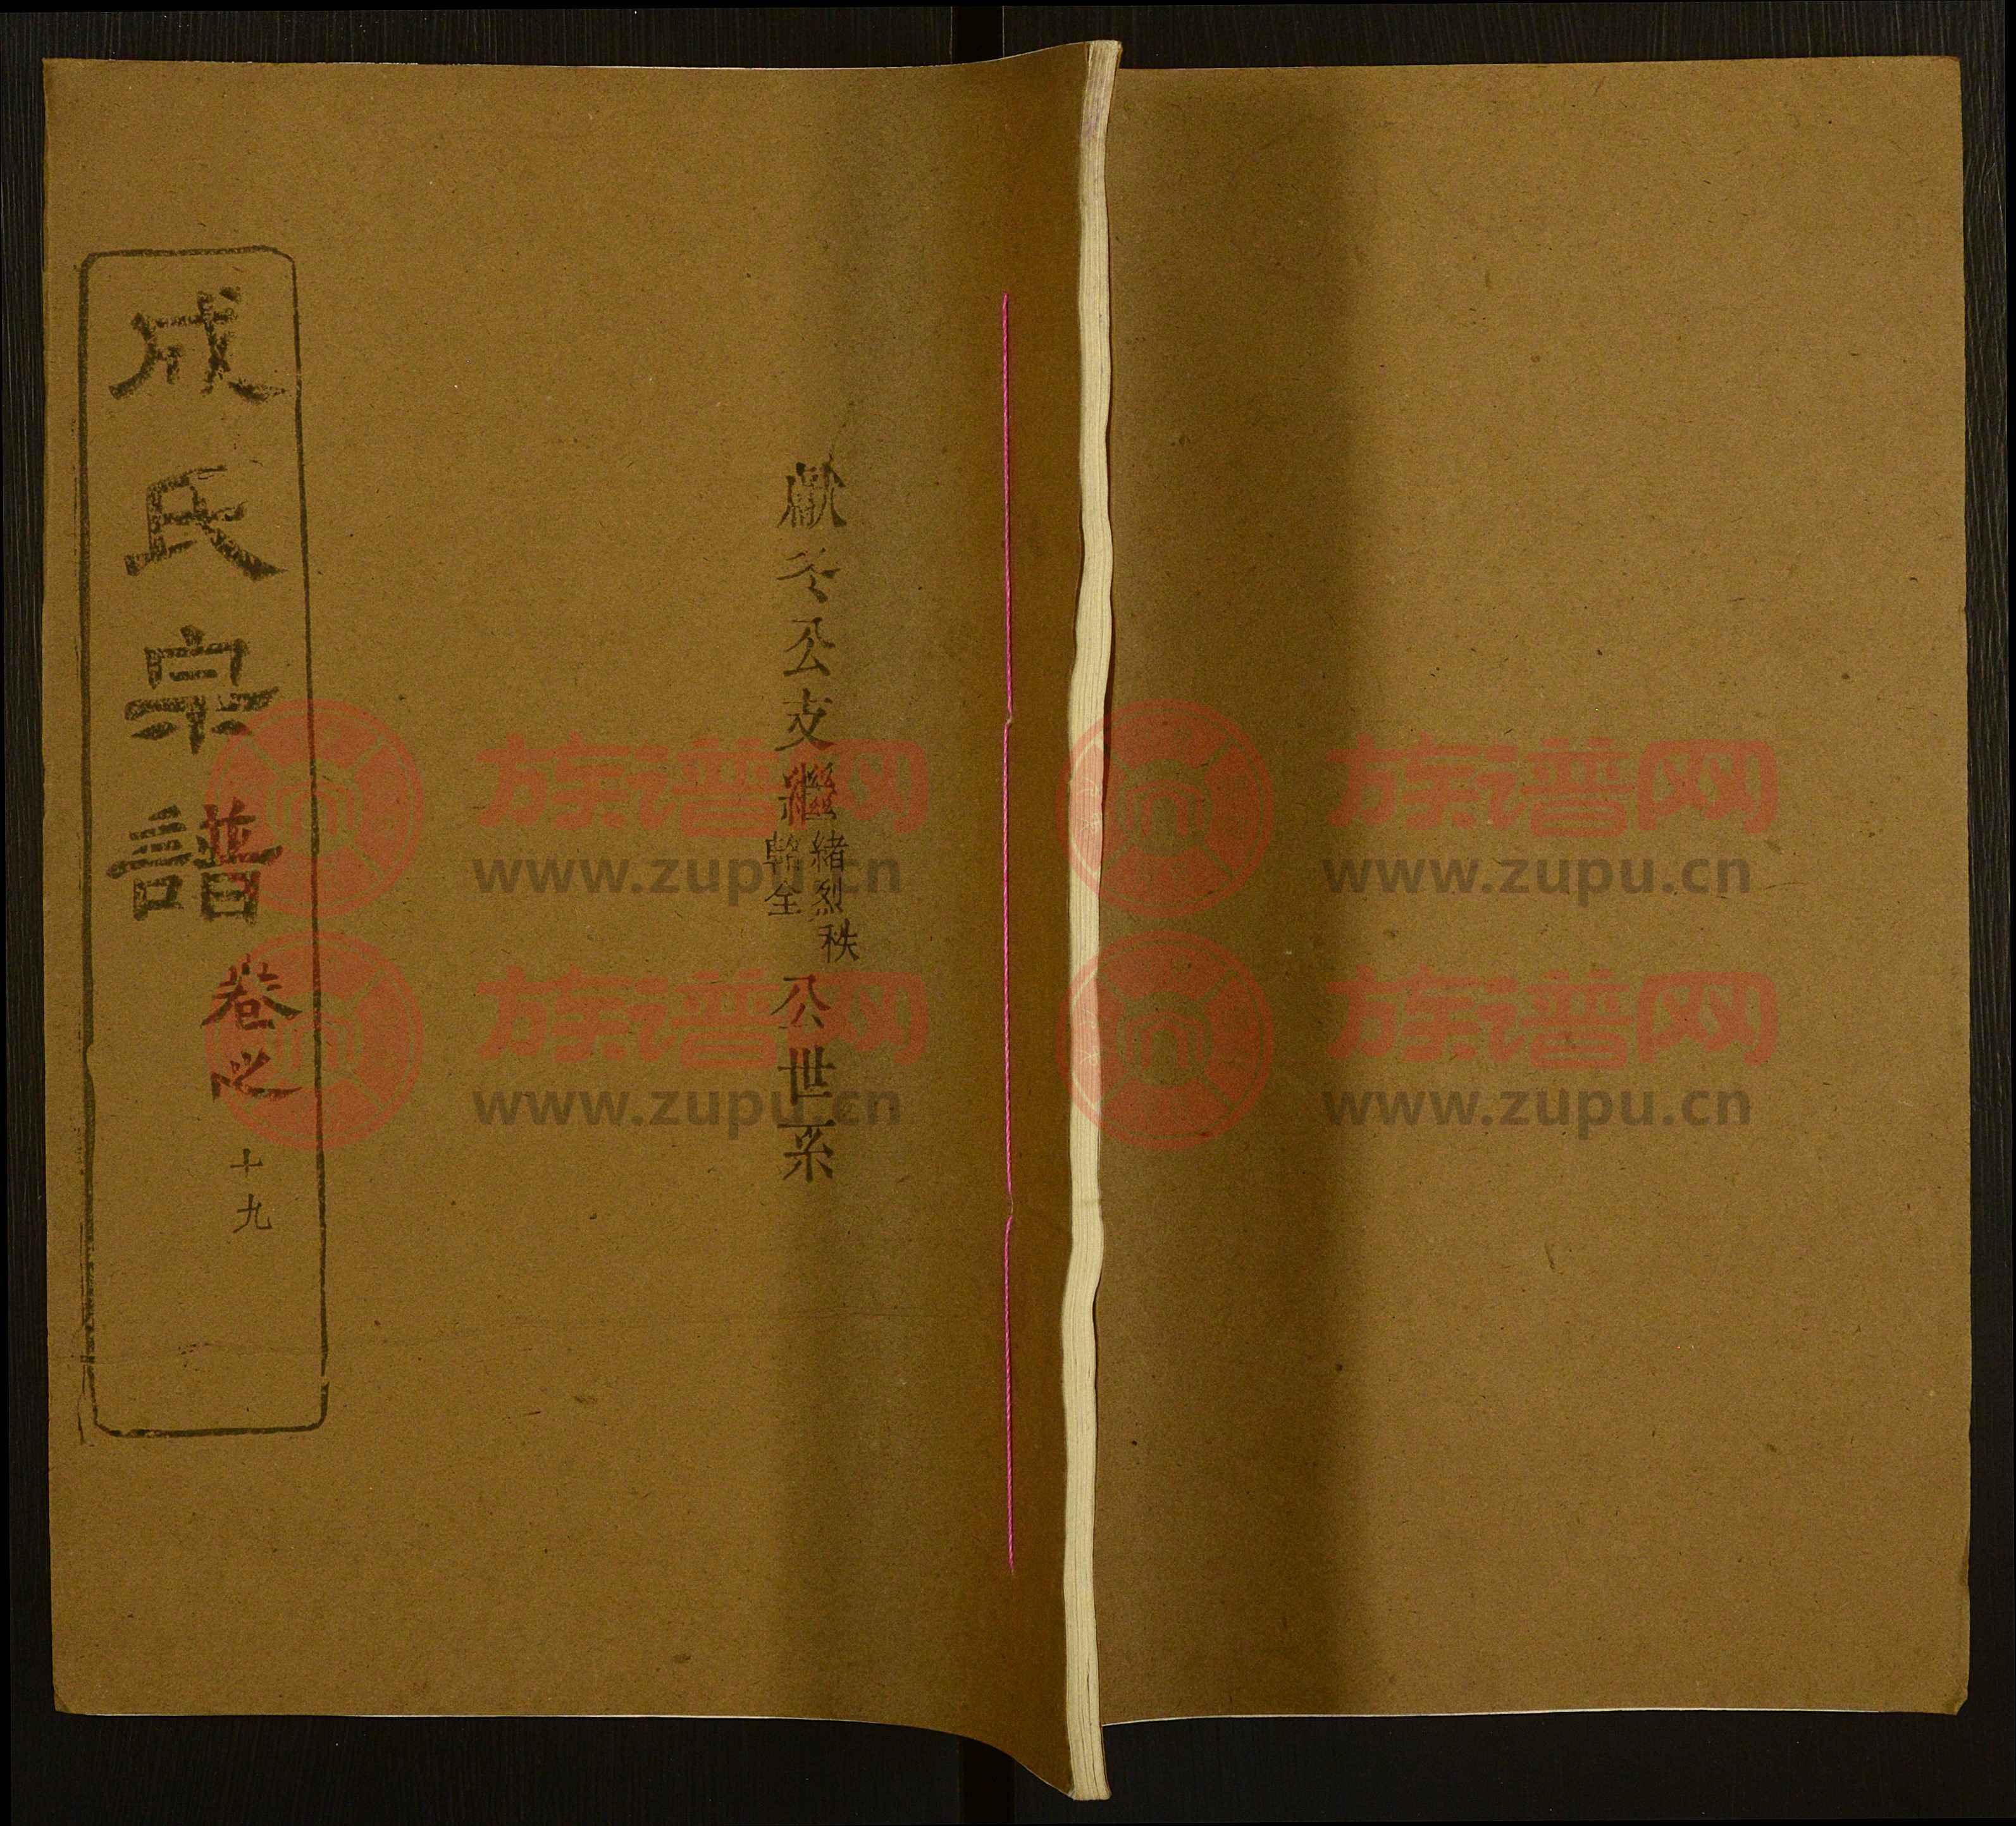 成氏宗譜 卷之 十九
獻冬公支繼
緒烈秩
全
公世系
族谱网
www.zupu.cn
族谱网
www.zupu.cn
族谱网
www.zupu.cn
族谱网
www.zupu.cn